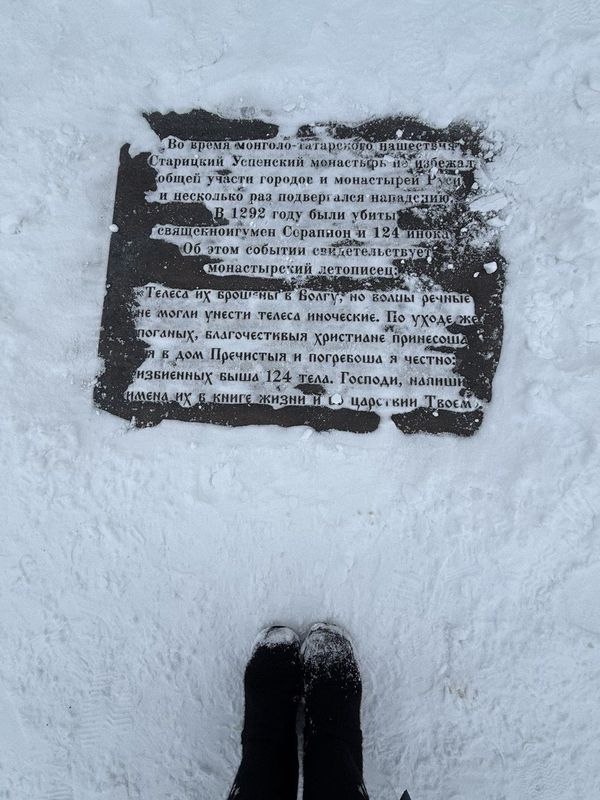 Во время монголо-татарского нашествия
Старицкий Успенский монастырь не избежал
общей участи городов и монастырей Руси
и несколько раз подвергался нападению.
В 1292 году были убиты
священноигумен Серапион и 124 инока
Об этом событии свидетельствует
монастырский летописец:
«Телеса их брошены в Волгу, но волны речные
не могли унести телеса иноческие. По уходе же
поганых, благочестивыя христиане принесоша
я в дом Пречистыя и погребоша я честно:
избиенных быша 124 тела. Господи, напиши
имена их в книге жизни и во царствии Твоем